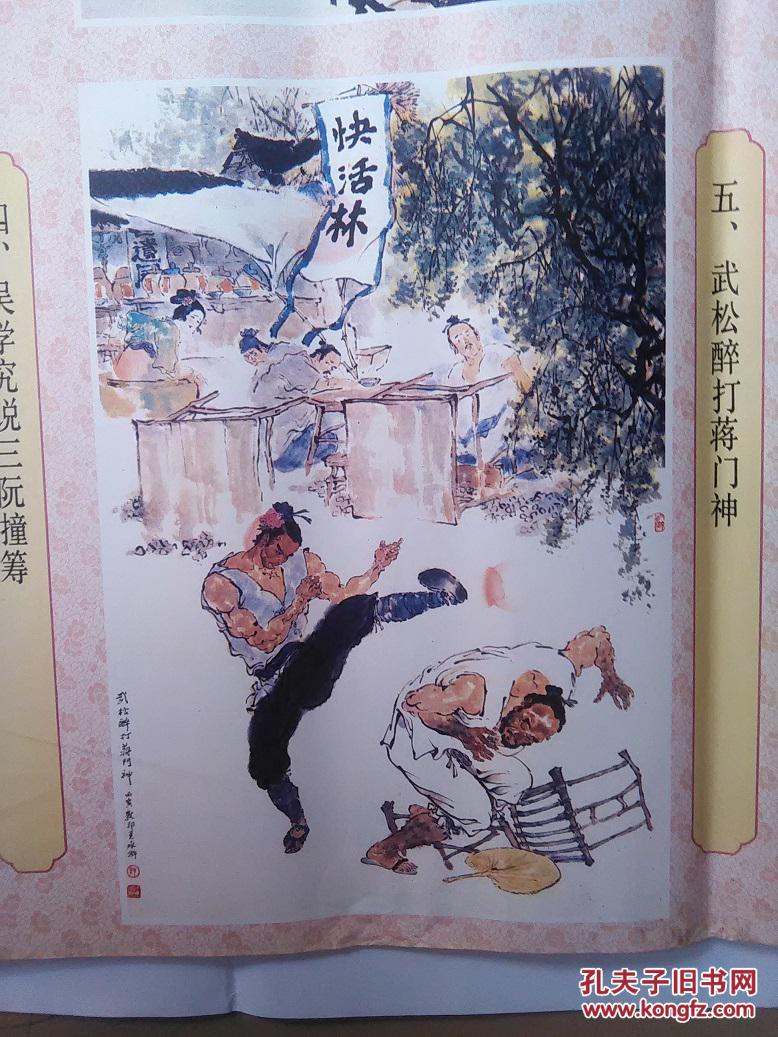 快活林
五、武松醉打蒋门神
四、吴学究说三阮撞筹
武松醉打蒋门神
孔夫子旧书网
www.kongfz.com